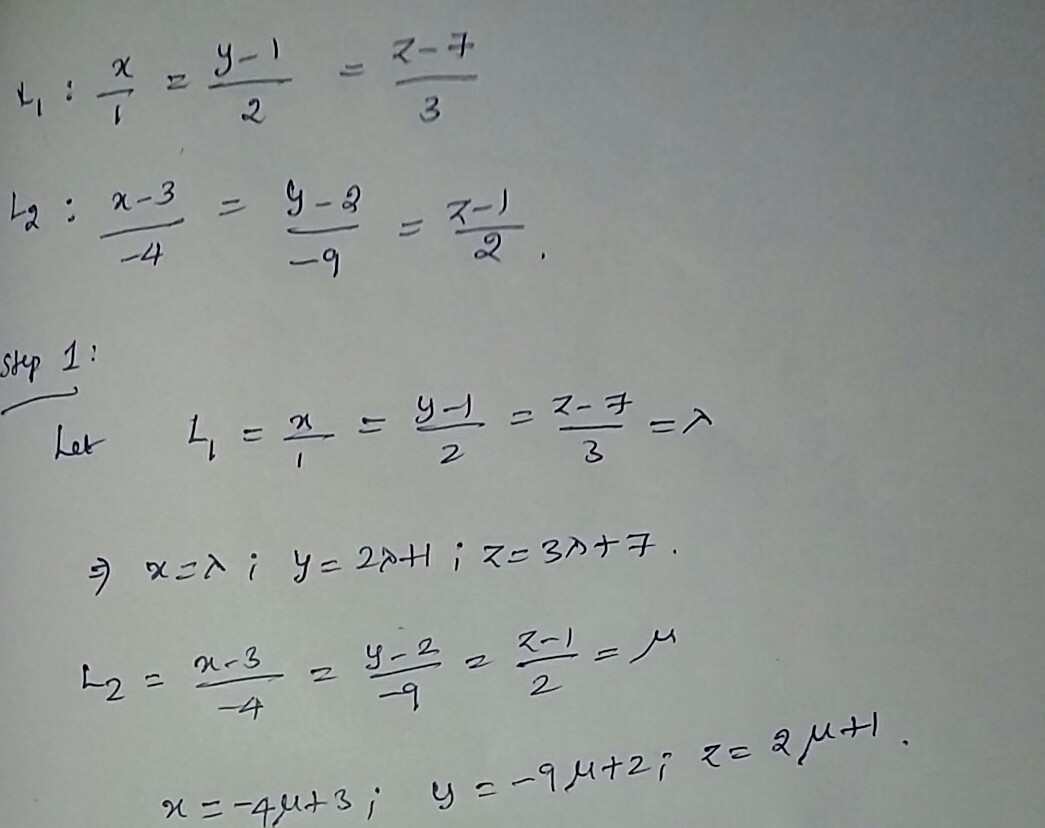 L₁ : x/1 = (y-1)/2 = (z-7)/3
L₂ : (x-3)/-4 = (y-2)/-9 = (z-1)/2 .
Step 1:
Let L₁ = x/1 = (y-1)/2 = (z-7)/3 = λ
⇒ x=λ ; y=2λ+1 ; z=3λ+7.
L₂ = (x-3)/-4 = (y-2)/-9 = (z-1)/2 = μ
x=-4μ+3 ; y=-9μ+2 ; z=2μ+1.